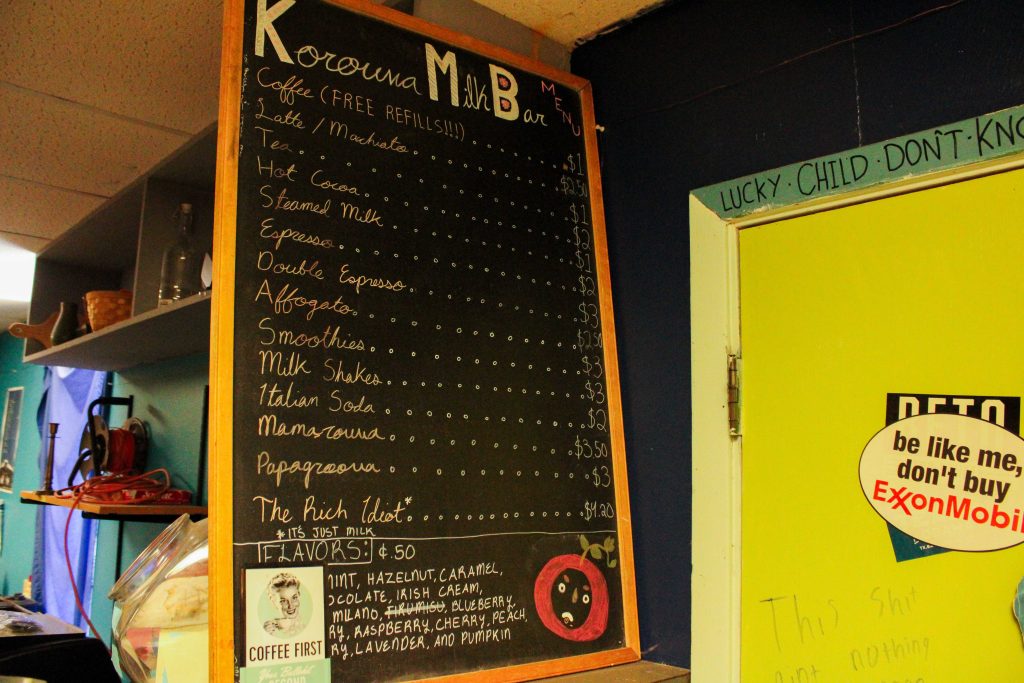 Korouna Milk Bar MENU
Coffee (FREE REFILLS!!!) $1
Latte / Machiato $2.50
Tea $1
Hot Cocoa $2
Steamed Milk $1
Espresso $2
Double Espresso $3
Affogato $2.50
Smoothies $3
Milk Shakes $3
Italian Soda $2
Mamarouna $3.50
Papagroouna $3
The Rich Idiot* $4.20
*IT'S JUST MILK
FLAVORS: ¢.50
MINT, HAZELNUT, CARAMEL,
OCOLATE, IRISH CREAM,
MILANO, TIRUMISU, BLUEBERRY
RY, RASPBERRY, CHERRY, PEACH,
RY, LAVENDER, AND PUMPKIN
COFFEE FIRST
LUCKY · CHILD · DON'T · KNO
be like me,
don't buy
ExxonMobil
This shit
aint nothing